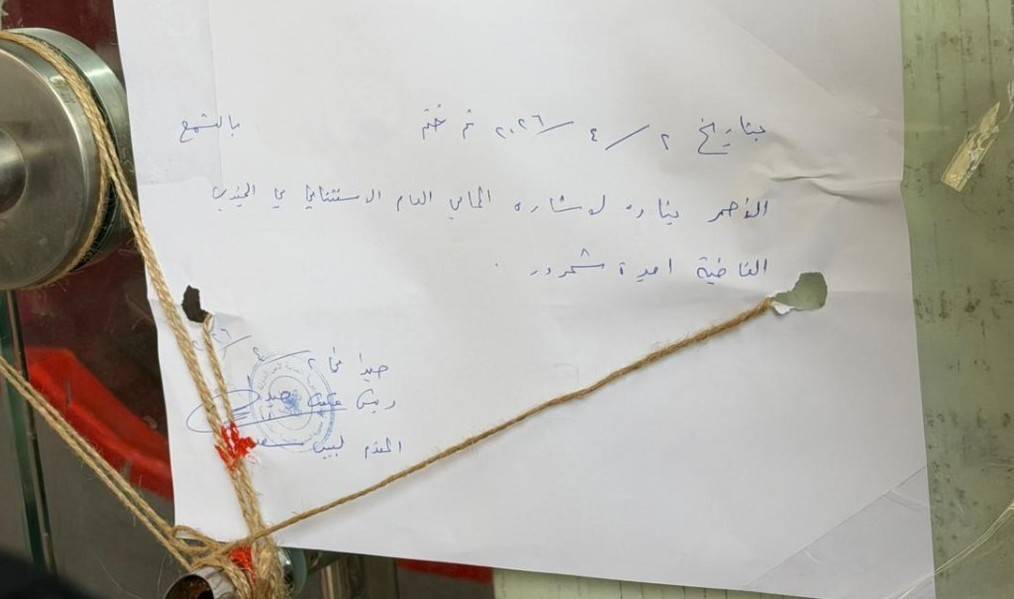 بتاريخ ٢ / ٤ / ٢٠٢٦ تم ختم بالشمع
الأحمر بناءً لاشارة المحامي العام الاستئنافي في الجنوب
القاضية شحرور .
صيدا في ٢ / ٤ / ٢٠٢٦
صيدا
المقدم لبيب